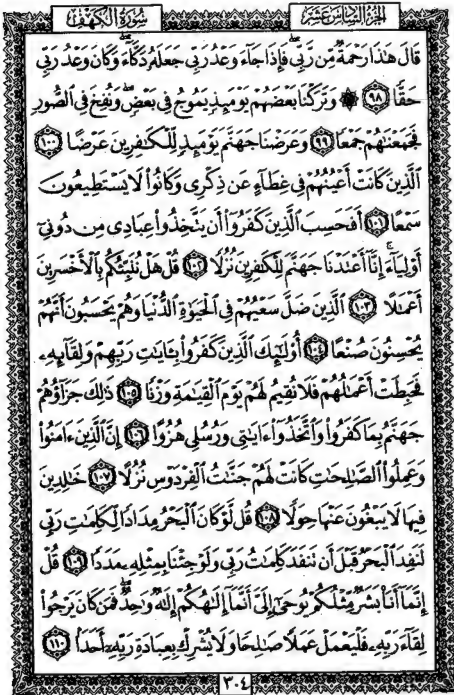 الجزء السادس عشر
سورة الكهف
قَالَ هَٰذَا رَحْمَةٌ مِّن رَّبِّي ۖ فَإِذَا جَاءَ وَعْدُ رَبِّي جَعَلَهُ دَكَّاءَ ۖ وَكَانَ وَعْدُ رَبِّي
حَقًّا ٩٨ ۞ وَتَرَكْنَا بَعْضَهُمْ يَوْمَئِذٍ يَمُوجُ فِي بَعْضٍ ۖ وَنُفِخَ فِي الصُّورِ
فَجَمَعْنَاهُمْ جَمْعًا ٩٩ وَعَرَضْنَا جَهَنَّمَ يَوْمَئِذٍ لِّلْكَافِرِينَ عَرْضًا ١٠٠
الَّذِينَ كَانَتْ أَعْيُنُهُمْ فِي غِطَاءٍ عَن ذِكْرِي وَكَانُوا لَا يَسْتَطِيعُونَ
سَمْعًا ١٠١ أَفَحَسِبَ الَّذِينَ كَفَرُوا أَن يَتَّخِذُوا عِبَادِي مِن دُونِي
أَوْلِيَاءَ ۚ إِنَّا أَعْتَدْنَا جَهَنَّمَ لِلْكَافِرِينَ نُزُلًا ١٠٢ قُلْ هَلْ نُنَبِّئُكُم بِالْأَخْسَرِينَ
أَعْمَالًا ١٠٣ الَّذِينَ ضَلَّ سَعْيُهُمْ فِي الْحَيَاةِ الدُّنْيَا وَهُمْ يَحْسَبُونَ أَنَّهُمْ
يُحْسِنُونَ صُنْعًا ١٠٤ أُولَٰئِكَ الَّذِينَ كَفَرُوا بِآيَاتِ رَبِّهِمْ وَلِقَائِهِ
فَحَبِطَتْ أَعْمَالُهُمْ فَلَا نُقِيمُ لَهُمْ يَوْمَ الْقِيَامَةِ وَزْنًا ١٠٥ ذَٰلِكَ جَزَاؤُهُمْ
جَهَنَّمُ بِمَا كَفَرُوا وَاتَّخَذُوا آيَاتِي وَرُسُلِي هُزُوًا ١٠٦ إِنَّ الَّذِينَ آمَنُوا
وَعَمِلُوا الصَّالِحَاتِ كَانَتْ لَهُمْ جَنَّاتُ الْفِرْدَوْسِ نُزُلًا ١٠٧ خَالِدِينَ
فِيهَا لَا يَبْغُونَ عَنْهَا حِوَلًا ١٠٨ قُل لَّوْ كَانَ الْبَحْرُ مِدَادًا لِّكَلِمَاتِ رَبِّي
لَنَفِدَ الْبَحْرُ قَبْلَ أَن تَنفَدَ كَلِمَاتُ رَبِّي وَلَوْ جِئْنَا بِمِثْلِهِ مَدَدًا ١٠٩ قُلْ
إِنَّمَا أَنَا بَشَرٌ مِّثْلُكُمْ يُوحَىٰ إِلَيَّ أَنَّمَا إِلَٰهُكُمْ إِلَٰهٌ وَاحِدٌ ۖ فَمَن كَانَ يَرْجُو
لِقَاءَ رَبِّهِ فَلْيَعْمَلْ عَمَلًا صَالِحًا وَلَا يُشْرِكْ بِعِبَادَةِ رَبِّهِ أَحَدًا ١١٠
٣٠٤